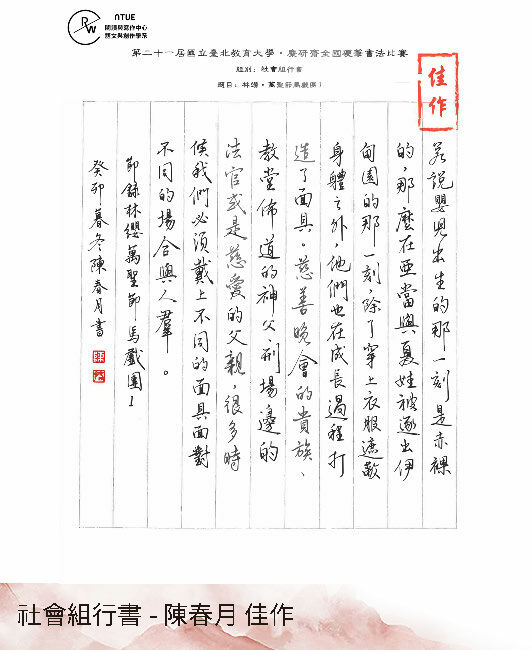 NTUE
閱讀與寫作中心
語文與創作學系
RW
第二十一屆國立臺北教育大學・麋研齋全國硬筆書法比賽
組別：社會組行書
題目：林纓・萬聖節馬戲團1
佳作
若說嬰兒出生的那一刻是赤裸
的，那麼在亞當與夏娃被逐出伊
甸園的那一刻，除了穿上衣服遮蔽
身體之外，他們也在成長過程打
造了面具。慈善晚會的貴族、
教堂佈道的神父、刑場邊的
法官或是慈愛的父親，很多時
候我們必須戴上不同的面具面對
不同的場合與人羣。
節錄林纓萬聖節馬戲團1
癸卯暮冬陳春月書
社會組行書 - 陳春月 佳作